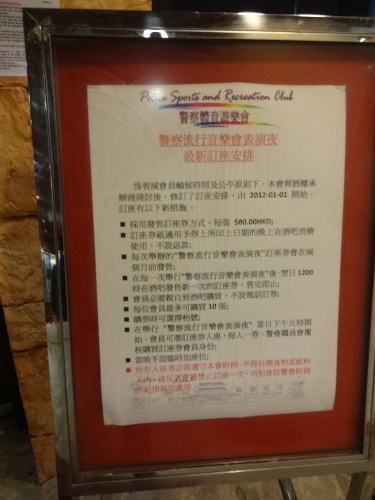 Police Sports and Recreation Club
警察體育遊樂會
警察流行音樂會表演夜
最新訂座安排
爲省減會員輪候時間及公平原則下,本會與酒樓承
辦商商討後,修訂了訂座安排,由 2012-01-01 開始,
訂座有以下新措施:
■ 採用發售訂座券方式,每張 $80.00HKD;
■ 訂座券祇適用予券上所印上日期的晚上在酒吧消費
使用,不設退款;
■ 每次舉辦的"警察流行音樂會表演夜"訂座券會在兩
個月前發售;
■ 在每一次舉行"警察流行音樂會表演夜"後,翌日 1200
時在酒吧發售新一次的訂座券,售完即止;
■ 會員必需親自到酒吧購買,不設電話訂券;
■ 每位會員最多可購買 10 張;
■ 購券時可選擇枱號;
■ 在舉行 "警察流行音樂會表演夜" 當日下午五時開
始,會員可憑訂座券入座,每人一券,警會職員會覆
核購買訂座券會員身份;
■ 當晚不設臨時加座位;
■ 所有入座者必需遵守本會附例,不得自攜食物或飲料
入內,違反者會被禁止訂座一次,再犯會按警會附例
的紀律規則處理。